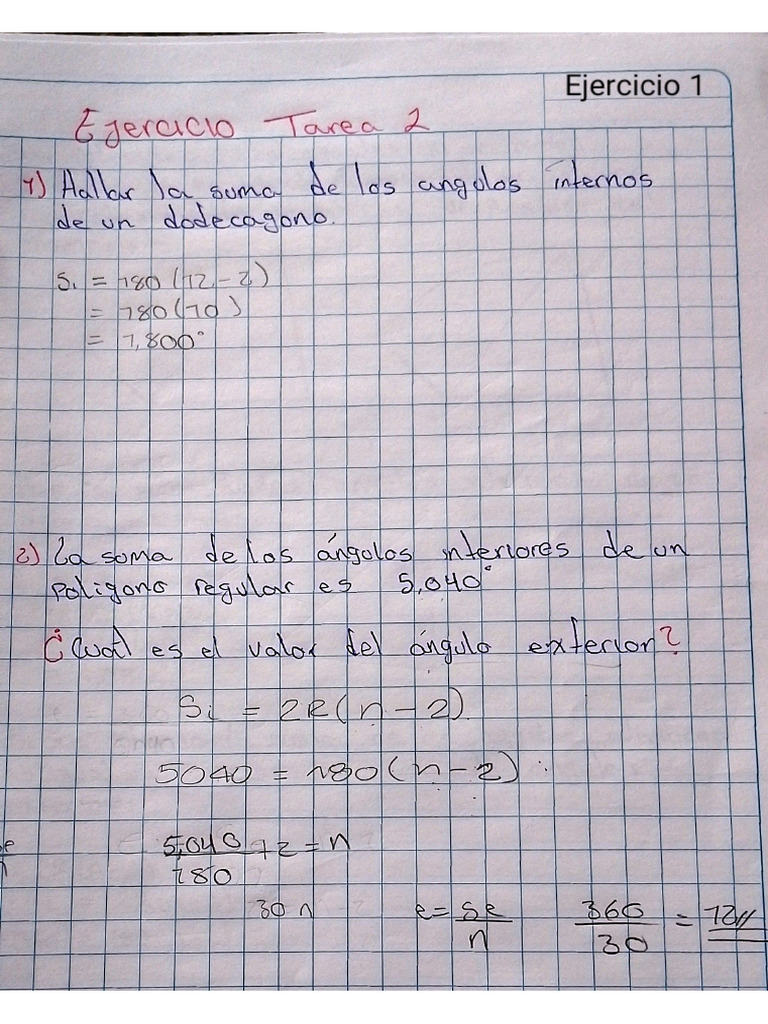 Ejercicio 1
Ejercicio Tarea 2
1) Hallar la suma de los angulos internos
de un dodecagono.
Si = 180 (12 - 2)
= 180 (10)
= 1,800°
2) La suma de los ángulos interiores de un
poligono regular es 5,040°
¿Cuál es el valor del ángulo exterior?
Si = 2R(n - 2)
5040 = 180(n - 2)
5,040/180 + 2 = n
30 n e = Se/n 360/30 = 12//